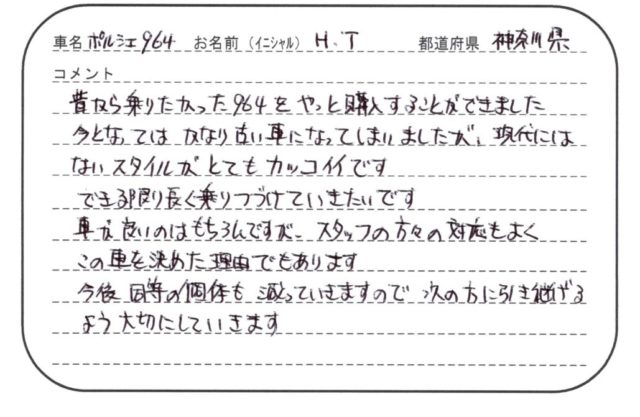 車名 ポルシェ964 お名前(イニシャル) H.T 都道府県 神奈川県
コメント
昔から乗りたかった964をやっと購入することができました
今となっては かなり古い車になってしまいましたが、現代には
ないスタイルがとてもカッコイイです
できる限り長く乗りつづけていきたいです
車が良いのはもちろんですが、スタッフの方々の対応もよく
この車を決めた理由でもあります
今後 同等の個体も 減っていきますので 次の方に引き継げる
よう大切にしていきます